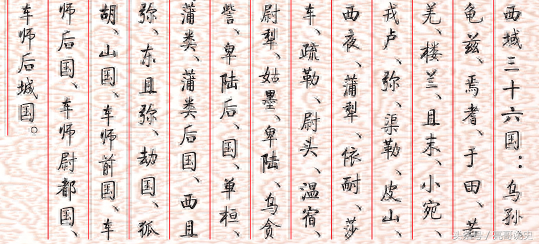 西域三十六国：乌孙、
龟兹、焉者、于田、若
羌、楼兰、且末、小宛、
戎卢、弥、渠勒、皮山、
西夜、蒲犁、依耐、莎
车、疏勒、尉头、温宿、
尉犁、姑墨、卑陆、乌贪
訾、卑陆后、国、单桓、
蒲类、蒲类后国、西且
弥、东且弥、劫国、狐
胡、山国、车师前国、车
师后国、车师尉都国、
车师后城国。